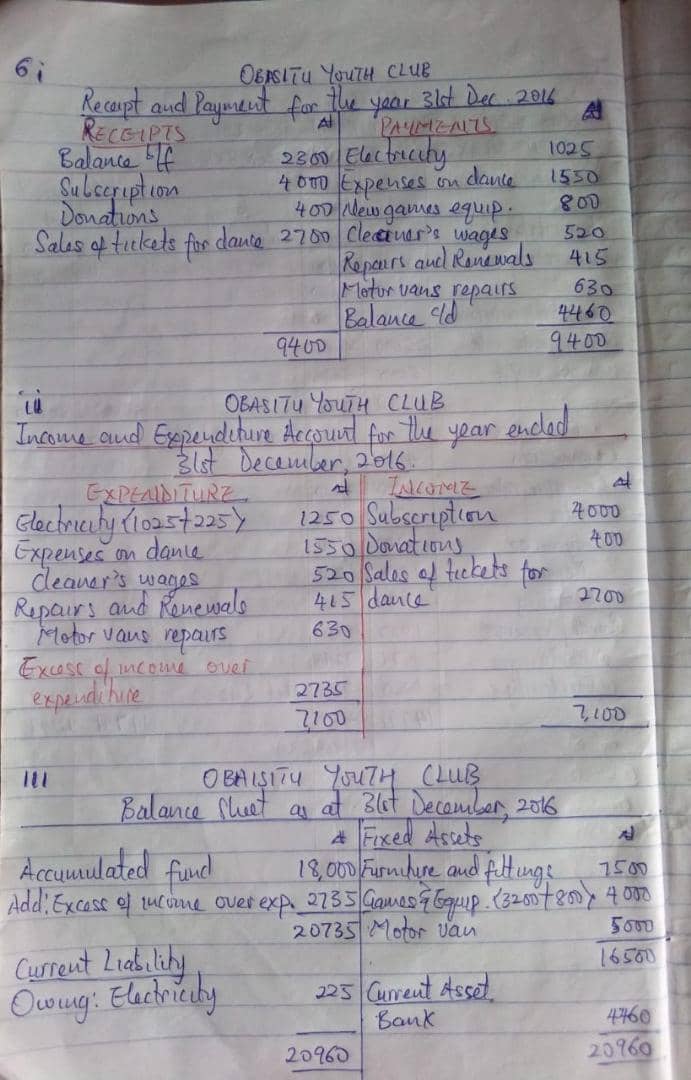 6i
OBASITU YOUTH CLUB
Receipt and Payment for the year 31st Dec. 2016
RECEIPTS ₦ PAYMENTS ₦
Balance b/f 2300 Electricity 1025
Subscription 4000 Expenses on dance 1550
Donations 400 New games equip. 800
Sales of tickets for dance 2700 Cleaner's wages 520
Repairs and Renewals 415
Motor vans repairs 630
Balance c/d 4460
9400 9400
ii OBASITU YOUTH CLUB
Income and Expenditure Account for the year ended
31st December, 2016.
EXPENDITURE ₦ INCOME ₦
Electricity (1025+225) 1250 Subscription 4000
Expenses on dance 1550 Donations 400
Cleaner's wages 520 Sales of tickets for
Repairs and Renewals 415 dance 2700
Motor vans repairs 630
Excess of income over
expenditure 2735
7,100 7,100
iii OBAISITU YOUTH CLUB
Balance Sheet as at 31st December, 2016
₦ Fixed Assets ₦
Accumulated fund 18,000 Furniture and fittings 7500
Add: Excess of income over exp. 2735 Games & Equip. (3200+800) 4000
20735 Motor van 5000
16500
Current Liability
Owing: Electricity 225 Current Asset
Bank 4460
20960 20960